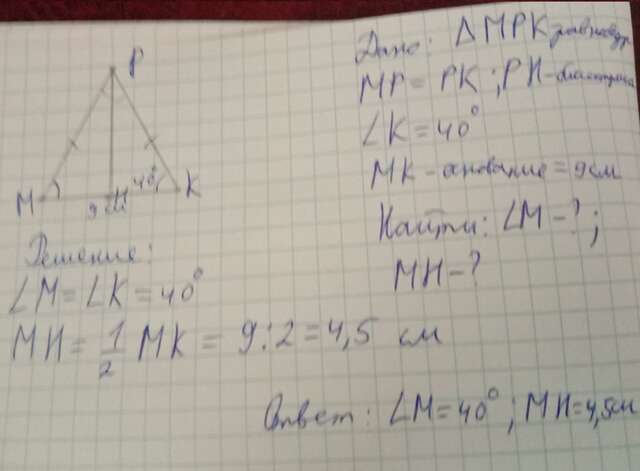 Дано: ΔMPK равнобедр
MP = PK ; PH - биссектриса
∠K = 40°
MK - основание = 9 см
Найти: ∠M - ? ;
MH - ?
P
M
H
K
40°
9 см
Решение:
∠M = ∠K = 40°
MH = 1/2 MK = 9 : 2 = 4,5 см
Ответ: ∠M = 40° ; MH = 4,5 см